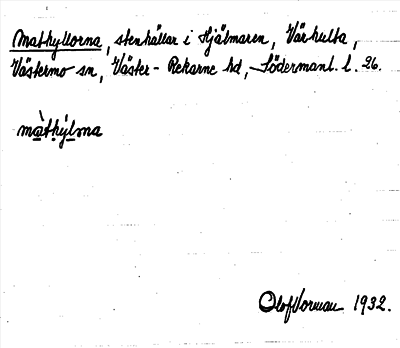 Mathyllorna, stenhällar i Hjälmaren, Värhulta,
Västermo sn, Väster-Rekarne hd, Södermanl. l. 26.
màthýlɷna
Olof Vorman 1932.